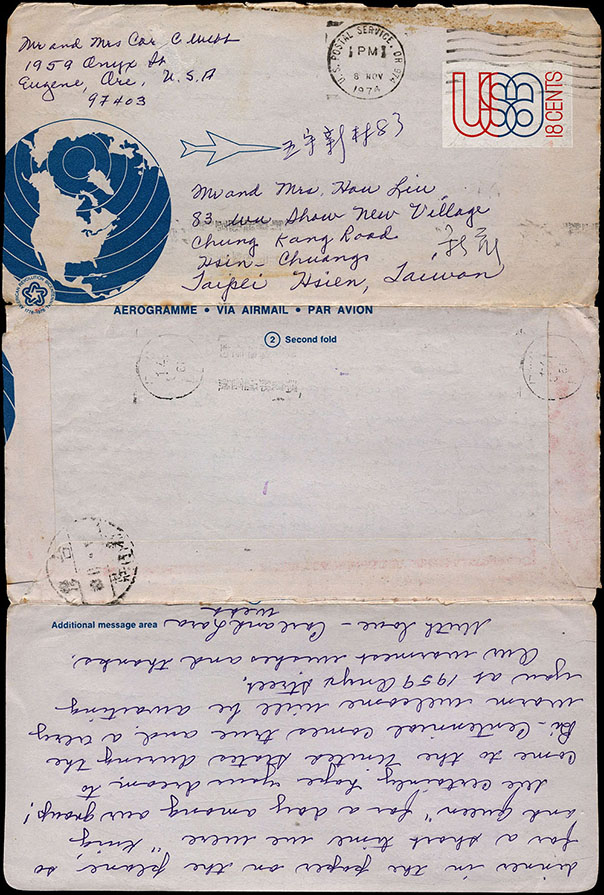 Mr and Mrs Carl C. Webb
1959 Onyx St
Eugene, Ore, U.S.A
97403
U.S. POSTAL SERVICE, OR 974
PM
8 NOV
1974
USA 18 CENTS
五守新村83
Mr and Mrs. Hou Liu
83 Wu Show New Village
Chung Kang Road
Hsin-Chuang
新莊
Taipei Hsien, Taiwan
AMERICAN REVOLUTION BICENTENNIAL 1776-1976
AEROGRAMME • VIA AIRMAIL • PAR AVION
2 Second fold
Additional message area
dinner in the paper on the plane, so
for a short time we were "king
and queen" for a day among our group!
We certainly hope your dream, to
come to the United States during the
Bi-Centennial comes true and, a very
warm welcome will be awaiting
you at 1959 Onyx Street.
Our warmest wishes and thanks.
With love - Carl and Lara
Webb